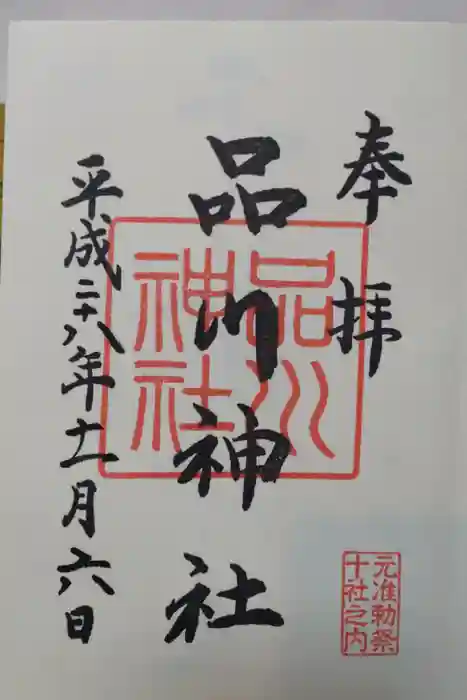 奉拝
品川神社
平成二十八年十一月六日
品川
神社
元准勅祭
十社之内